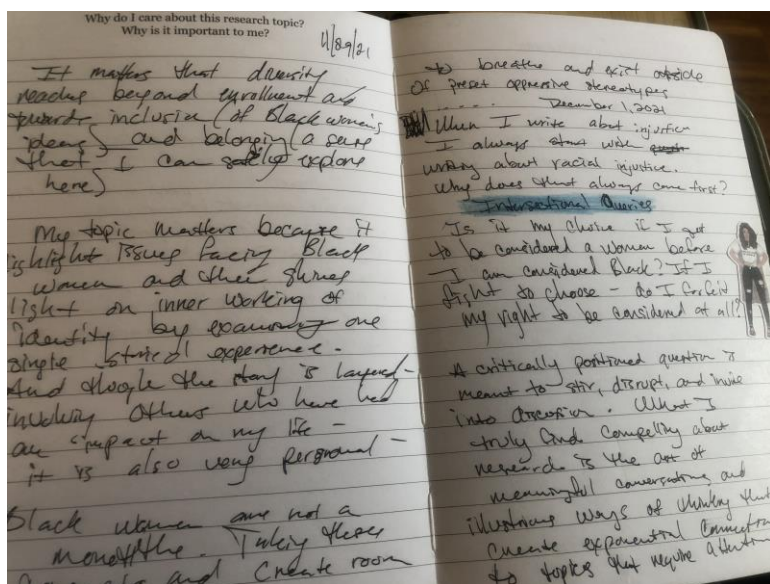 Why do I care about this research topic?
Why is it important to me?
It matters that diversity
reaches beyond enrollment and
towards inclusion (of Black women's
ideas) and belonging (a sense
that I can safely explore
here)
My topic matters because it
highlight issues facing Black
women and then shines
light on inner working of
identity by examining one
single experience.
And though the story is layered –
involving others who have had
an impact on my life –
it is also very personal –
Black women are not a
monolithe. Taking these
and create room
to breathe and exist outside
of preset oppressive stereotypes
December 1, 2021
When I write about injustice
I always start with
writing about racial injustice.
Why does that always come first?
Intersectional Queries
Is it my choice if I get
to be considered a woman before
I am considered Black? If I
fight to choose – do I forfeit
my right to be considered at all?
A critically positioned question is
meant to stir, disrupt, and invite
into discussion. What I
truly find compelling about
research is the art of
meaningful conversations and
illustrious ways of thinking that
create exponential connection
to topics that require attention